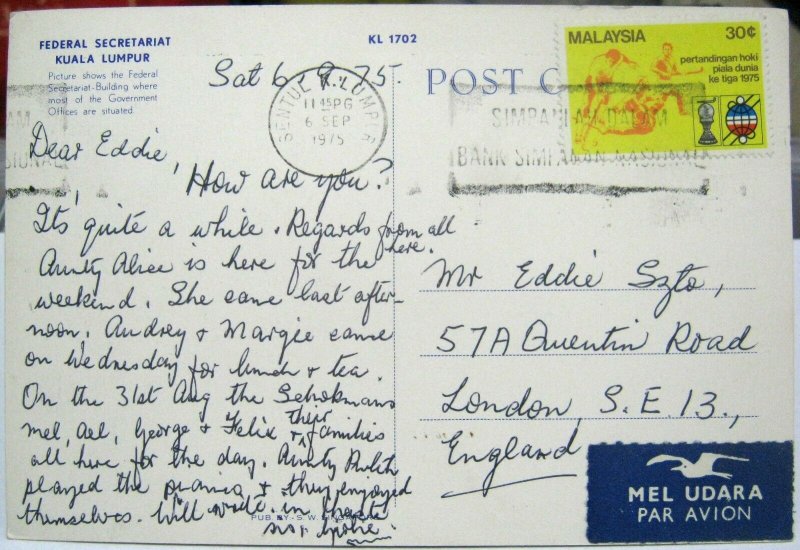 FEDERAL SECRETARIAT
KUALA LUMPUR
Picture shows the Federal
Secretariat-Building where
most of the Government
Offices are situated.
KL 1702
POST C
Sat 6.9.75.
SENTUL K. LUMPUR
11 45 PG
6 SEP
1975
SIMPANLAH DALAM
BANK SIMPANAN NASIONAL
MALAYSIA 30¢
pertandingan hoki
piala dunia
ke tiga 1975
Dear Eddie,
How are you?
Its quite a while. Regards from all here.
Aunty Alice is here for the
weekend. She came last after-
noon. Audrey & Margie came
on Wednesday for lunch & tea.
On the 31st Aug the Schokmans
Mel, Ael, George & Felix & their families
all here for the day. Aunty Ruth
played the piano & they enjoyed
themselves. Will write in haste
PUB. BY - S. W.
Mr Eddie Szto,
57A Quentin Road
London, S.E. 13.,
England
MEL UDARA
PAR AVION